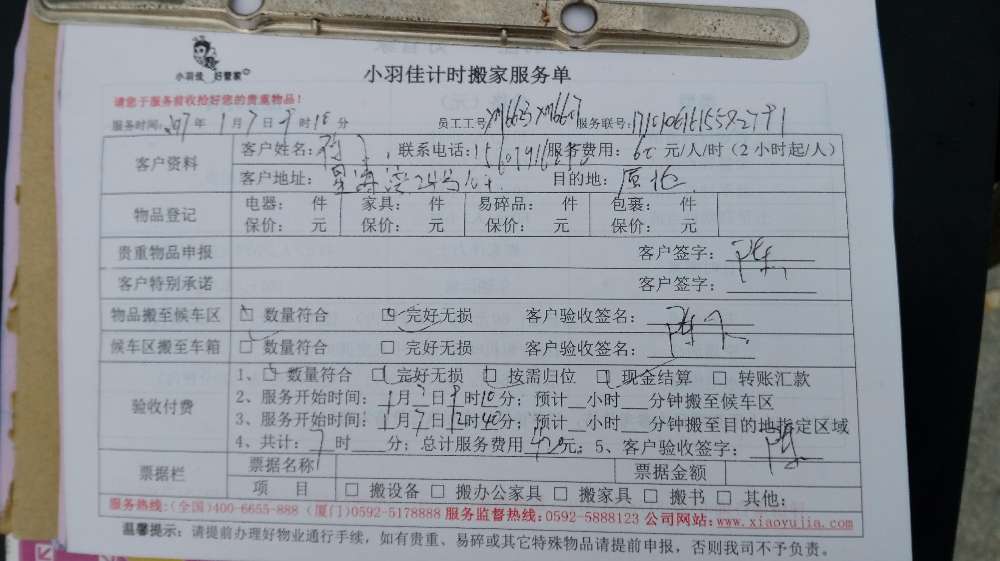 小羽佳 好管家
小羽佳计时搬家服务单
请您于服务前收拾好您的贵重物品!
服务时间: 年 1月7日9时10分 员工工号: XM6623 XM6617 服务联号:
客户资料 客户姓名: 联系电话: 服务费用: 元/人/时(2小时起/人)
客户地址: 24号 目的地: 原地
物品登记 电器: 件 家具: 件 易碎品: 件 包裹: 件
保价: 元 保价: 元 保价: 元 保价: 元
贵重物品申报 客户签字: 陈
客户特别承诺 客户签字:
物品搬至候车区 □ 数量符合 □ 完好无损 客户验收签名: 陈
候车区搬至车箱 □ 数量符合 □ 完好无损 客户验收签名:
验收付费 1、□ 数量符合 □ 完好无损 □ 按需归位 □ 现金结算 □ 转账汇款
2、服务开始时间: 1月7日9时10分; 预计__小时___分钟搬至候车区
3、服务开始时间: 1月7日12时40分; 预计__小时___分钟搬至目的地指定区域
4、共计: 7时____分; 总计服务费用420元; 5、客户验收签字: 陈
票据栏 票据名称 票据金额
项 目 □ 搬设备 □ 搬办公家具 □ 搬家具 □ 搬书 □ 其他:
服务热线:(全国)400-6655-888 (厦门)0592-5178888 服务监督热线:0592-5888123 公司网站:www.xiaoyujia.com
温馨提示: 请提前办理好物业通行手续, 如有贵重、易碎或其它特殊物品请提前申报, 否则我司不予负责。